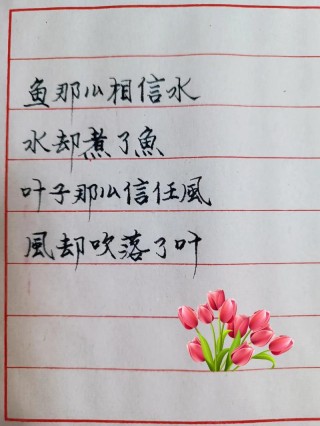 鱼那么相信水
水却煮了魚
叶子那么信任風
風却吹落了叶